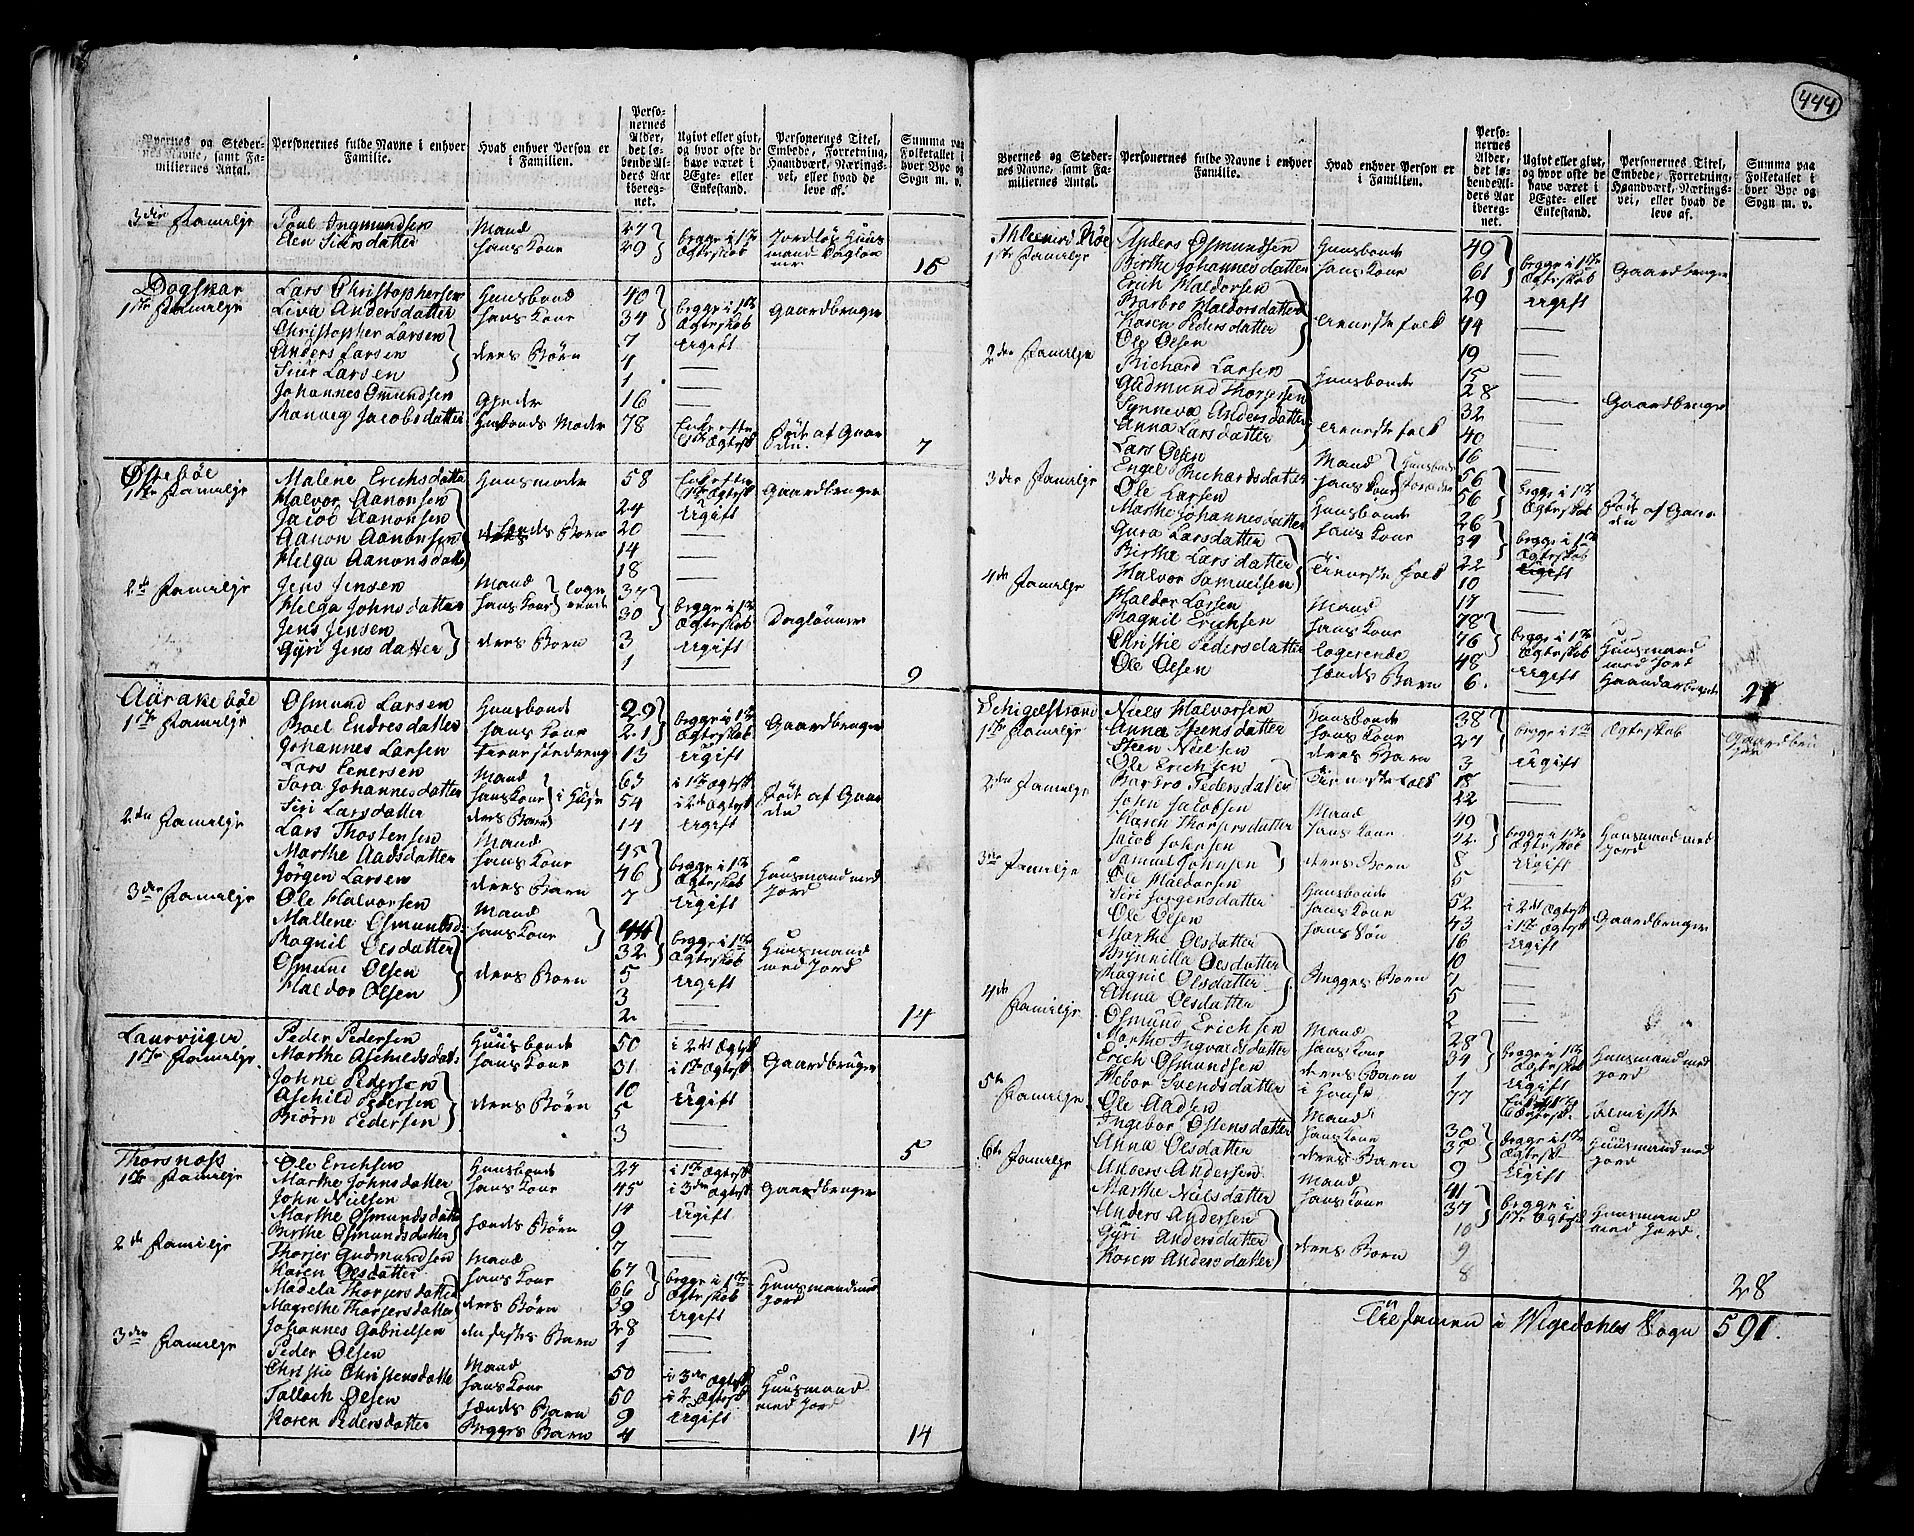 444
Byernes og Stedernes Navne, samt Familiernes Antal.
Personernes fulde Navne i enhver Familie.
Hvad enhver Person er i Familien.
Personernes Alder, det løbende Alders Aar iberegnet.
Ugivt eller givt, og hvor ofte de have været i Ægte- eller Enkestand.
Personernes Titel, Embede, Forretning, Haandværk, Næringsvei, eller hvad de leve af.
Summa paa Folketallet i hver Bye og Sogn m. v.
3die Familje Poul Ingmundsen Mand 27 begge i 1ste Jordløs Huus
Elen Siursdatter hans Kone 29 Ægteskab mand Dagløn
ner 15
Dogskar Lars Christophersen Huusbond 40 begge i 1ste Gaardbruger
1ste Familje Liva Andersdatter hans Kone 34 Ægteskab
Christopher Larsen 7 Ugift
Anders Larsen deres Børn 4
Siur Larsen 1
Johannes Omundsen Gjeder 16
Ranveg Jacobsdatter Husbonds Moder 78 Enke efter 1ste Ægtesk Født af Gaarden 7
Østebøe Malene Erichsdatter Huusmoder 58 Enke efter Gaardbruger
1ste Familje Halvor Aanonsen 24 Ugift
Jacob Aanonsen 20
Aanon Aanonsen hendes Børn 14
Helga Aanonsdatter 18
2de Familje Jens Jensen Mand logerende 37 begge i 1ste Daglønner
Helga Johnsdatter hans Kone 30 Ægteskab
Jens Jensen deres Børn 3 Ugift
Gyri Jensdatter 1
9
Aarakebøe Osmund Larsen Huusbonde 29 begge i 1ste Gaardbruger
1ste Familje Boel Endresdatter hans Kone 21 Ægteskab
Johannes Larsen tienestedreng 13 Ugift
Lars Enersen Mand 63 i 1ste Ægtesk Født af Gaarden
Sara Johannesdatter hans Kone i Huse 54 i 2det Ægtesk
Siri Larsdatter deres Barn 14 Ugift
2den Familje Lars Thostensen Mand 45 begge i 1ste Huusmand med
Marthe Aadsdatter hans Kone 46 Ægteskab Jord
Jørgen Larsen deres Barn 7 Ugift
3die Familje Ole Halvorsen Mand 44 begge i 1ste Huusmand
Mallene Osmundsd: hans Kone 32 Ægteskab med Jord
Ragnil Olsdatter 5 Ugift
Osmund Olsen deres Børn 3
Haldor Olsen 2
14
Laurviiger Peder Pedersen Huusbonde 50 i 2det Ægtesk Gaardbruger
1ste Familje Marthe Aschildsdat: hans Kone 31 i 1ste Ægtesk
Johne Pedersen 10 Ugift
Aschild Pedersen deres Børn 5
Biørn Pedersen 3
5
Thorsnæss Ole Erichsen Huusbonde 27 i 1ste Ægtesk Gaardbruger
1ste Familje Marthe Johnsdatter hans Kone 45 i 3die Ægtesk
John Nielsen 14 Ugift
Marthe Osmundsdatter hendes Børn 9
Birthe Osmundsdatter 7
2de Familje Thorjer Gudmundsen Mand 67 begge i 1ste Huusmand med
Karen Olsdatter hans Kone 66 Ægteskab Jord
Madela Thorjersdatter deres Børn 39 Ugift
Magrethe Thorjersdatter 28
Johannes Gabrielsen 1
3die Familje Peder Olsen Mand 50 i 3die Ægtesk Huusmand
Christie Christensdatter hans Kone 50 i 2 Ægtesk med Jord
Tallach Olsen hendes Barn 9 Ugift
Karen Pedersdatter Begges Barn 4
14
Byernes og Stedernes Navne, samt Familiernes Antal.
Personernes fulde Navne i enhver Familie.
Hvad enhver Person er i Familien.
Personernes Alder, det løbende Alders Aar iberegnet.
Ugivt eller givt, og hvor ofte de have været i Ægte- eller Enkestand.
Personernes Titel, Embede, Forretning, Haandværk, Næringsvei, eller hvad de leve af.
Summa paa Folketallet i hver Bye og Sogn m. v.
Anders Osmundsen Huusbonde 49 begge i 1ste Gaardbruger
1ste Familje Birthe Johannesdatter hans Kone 61 Ægteskab
Erich Haldorsen 29 Ugift
Barbro Haldorsdatter tieneste folk 44
Karen Pedersdatter 19
Ole Olsen 15
2den Familje Richard Larsen Huusbonde 28 Gaardbruger
Gudmund Thorjersen 32
Synneva Andersdatter tieneste folk 40
Anna Larsdatter 16
Lars Olsen Mand 56 begge i 1ste Født af Gaar
3die Familje Engel Richardsdatter hans Kone 56 Ægteskab den
Ole Larsen Huusbonde 26 begge i 1ste
Marthe Johannesdatter hans Kone 34 Ægteskab
Gura Larsdatter 22 Ugift
Birthe Larsdatter tieneste folk 10
4de Familje Halvor Samuelsen 17
Haldor Larsen Mand 78 begge i 1ste Huusmand
Ragnil Erichsen hans Kone 76 Ægteskab med Jord
Christie Pedersdatter logerende 48 Ugift Haandarbeyde
Ole Olsen hendes Barn 6
27
Schigelstrand Niels Halvorsen Huusbonde 38 begge i 1ste Ægteskab Gaardbru
1ste Familje Anna Steensdatter hans Kone 27 ger
Steen Nielsen deres Barn 3 Ugift
Ole Erichsen tieneste folk 18
Barbro Pedersdatter 22
2den Familje John Jacobsen Mand 49 begge i 1ste Huusmand med
Karen Thorjersdatter hans Kone 42 Ægteskab Jord
Jacob Johnsen deres Børn 8 Ugift
Samuel Johnsen 5
3die Familje Ole Haldorsen Huusbonde 52 i 2det Ægtesk Gaardbruger
Siri Jørgensdatter hans Kone 43 i 1ste Ægtesk
Ole Olsen hans Søn 16 Ugift
Marthe Olsdatter 10
Brynnilla Olsdatter Begges Børn 7
Ragnil Olsdatter 5
Anna Olsdatter 2
4de Familje Osmund Erichsen Mand 28 begge i 1ste Huusmand med
Marthe Ingvaldsdatter hans Kone 34 Ægteskab Jord
Erich Osmundsen deres Barn 1 Ugift
Hebor Svendsdatter i Huuse 77
5te Familje Ole Aadsen Mand 30 begge i 1ste Huusmand med
Ingebor Ostensdatter hans Kone 37 Ægteskab Jord
Anna Olsdatter deres Barn 9 Ugift
6te Familje Anders Andersen Mand 41 begge i Huusmand
Marthe Nielsdatter hans Kone 37 1ste Ægtesk med Jord.
Anders Andersen 10
Gyri Andersdatter deres Børn 9
Karen Andersdatter 8
28
Tilsammen i Wigedahls Sogn 591.